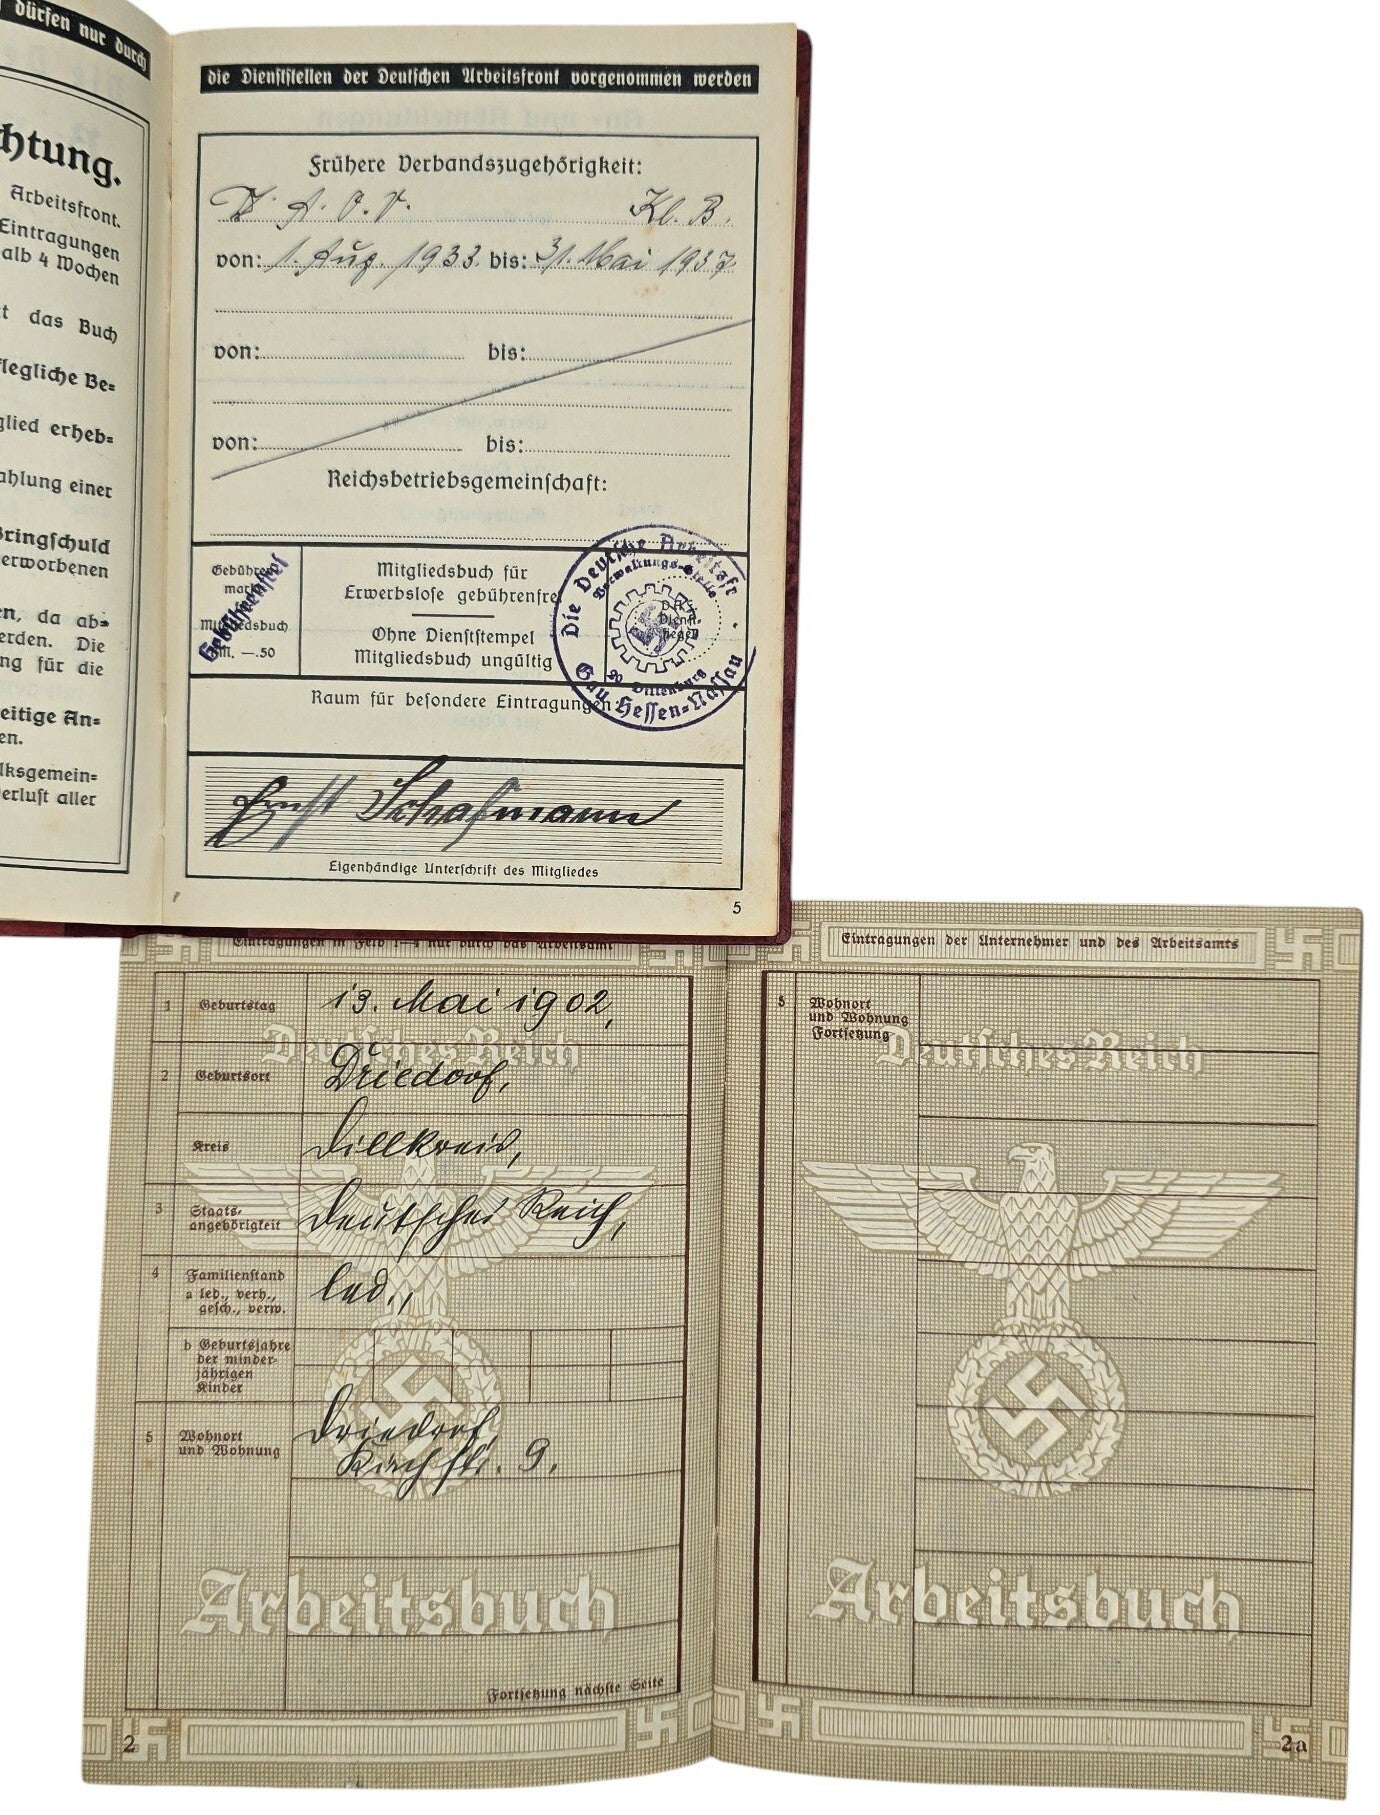 dürfen nur durch
chtung.
Arbeitsfront.
Eintragungen
alb 4 Wochen
t das Buch
flegliche Be=
glied erheb=
ahlung einer
Bringschuld
erworbenen
en, da ab=
erden. Die
ng für die
eitige An=
en.
lksgemein=
erlust aller
die Dienststellen der Deutschen Arbeitsfront vorgenommen werden
Frühere Verbandszugehörigkeit:
D. A. O. V. Kl. B.
von: 1. Aug. 1933. bis: 31. Mai 1937.
von: bis:
von: bis:
Reichsbetriebsgemeinschaft:
Gebühren
mark
Mitgliedsbuch
M. —.50
Gebührenfrei
Mitgliedsbuch für
Erwerbslose gebührenfre
Ohne Dienststempel
Mitgliedsbuch ungültig
Die Deutsche Arbeitsfr
Verwaltungs-Stelle
20 Dillenburg
Gau Hessen=Nassau
Dienst-
siegel
Raum für besondere Eintragungen:
Ernst Schafmann
Eigenhändige Unterschrift des Mitgliedes
5
Eintragungen in Feld 1—4 nur durch das Arbeitsamt
1 Geburtstag 13. Mai 1902,
Deutsches Reich
2 Geburtsort Driedorf,
Kreis Dillkreis,
3 Staats-
angehörigkeit Deutsches Reich,
4 Familienstand
a led., verh.,
gesch., verw. led.,
b Geburtsjahre
der minder-
jährigen
Kinder
5 Wohnort
und Wohnung Driedorf,
Kirchstr. 9.
Arbeitsbuch
Fortsetzung nächste Seite
2
Eintragungen der Unternehmer und des Arbeitsamts
5 Wohnort
und Wohnung
Fortsetzung
Deutsches Reich
Arbeitsbuch
2a